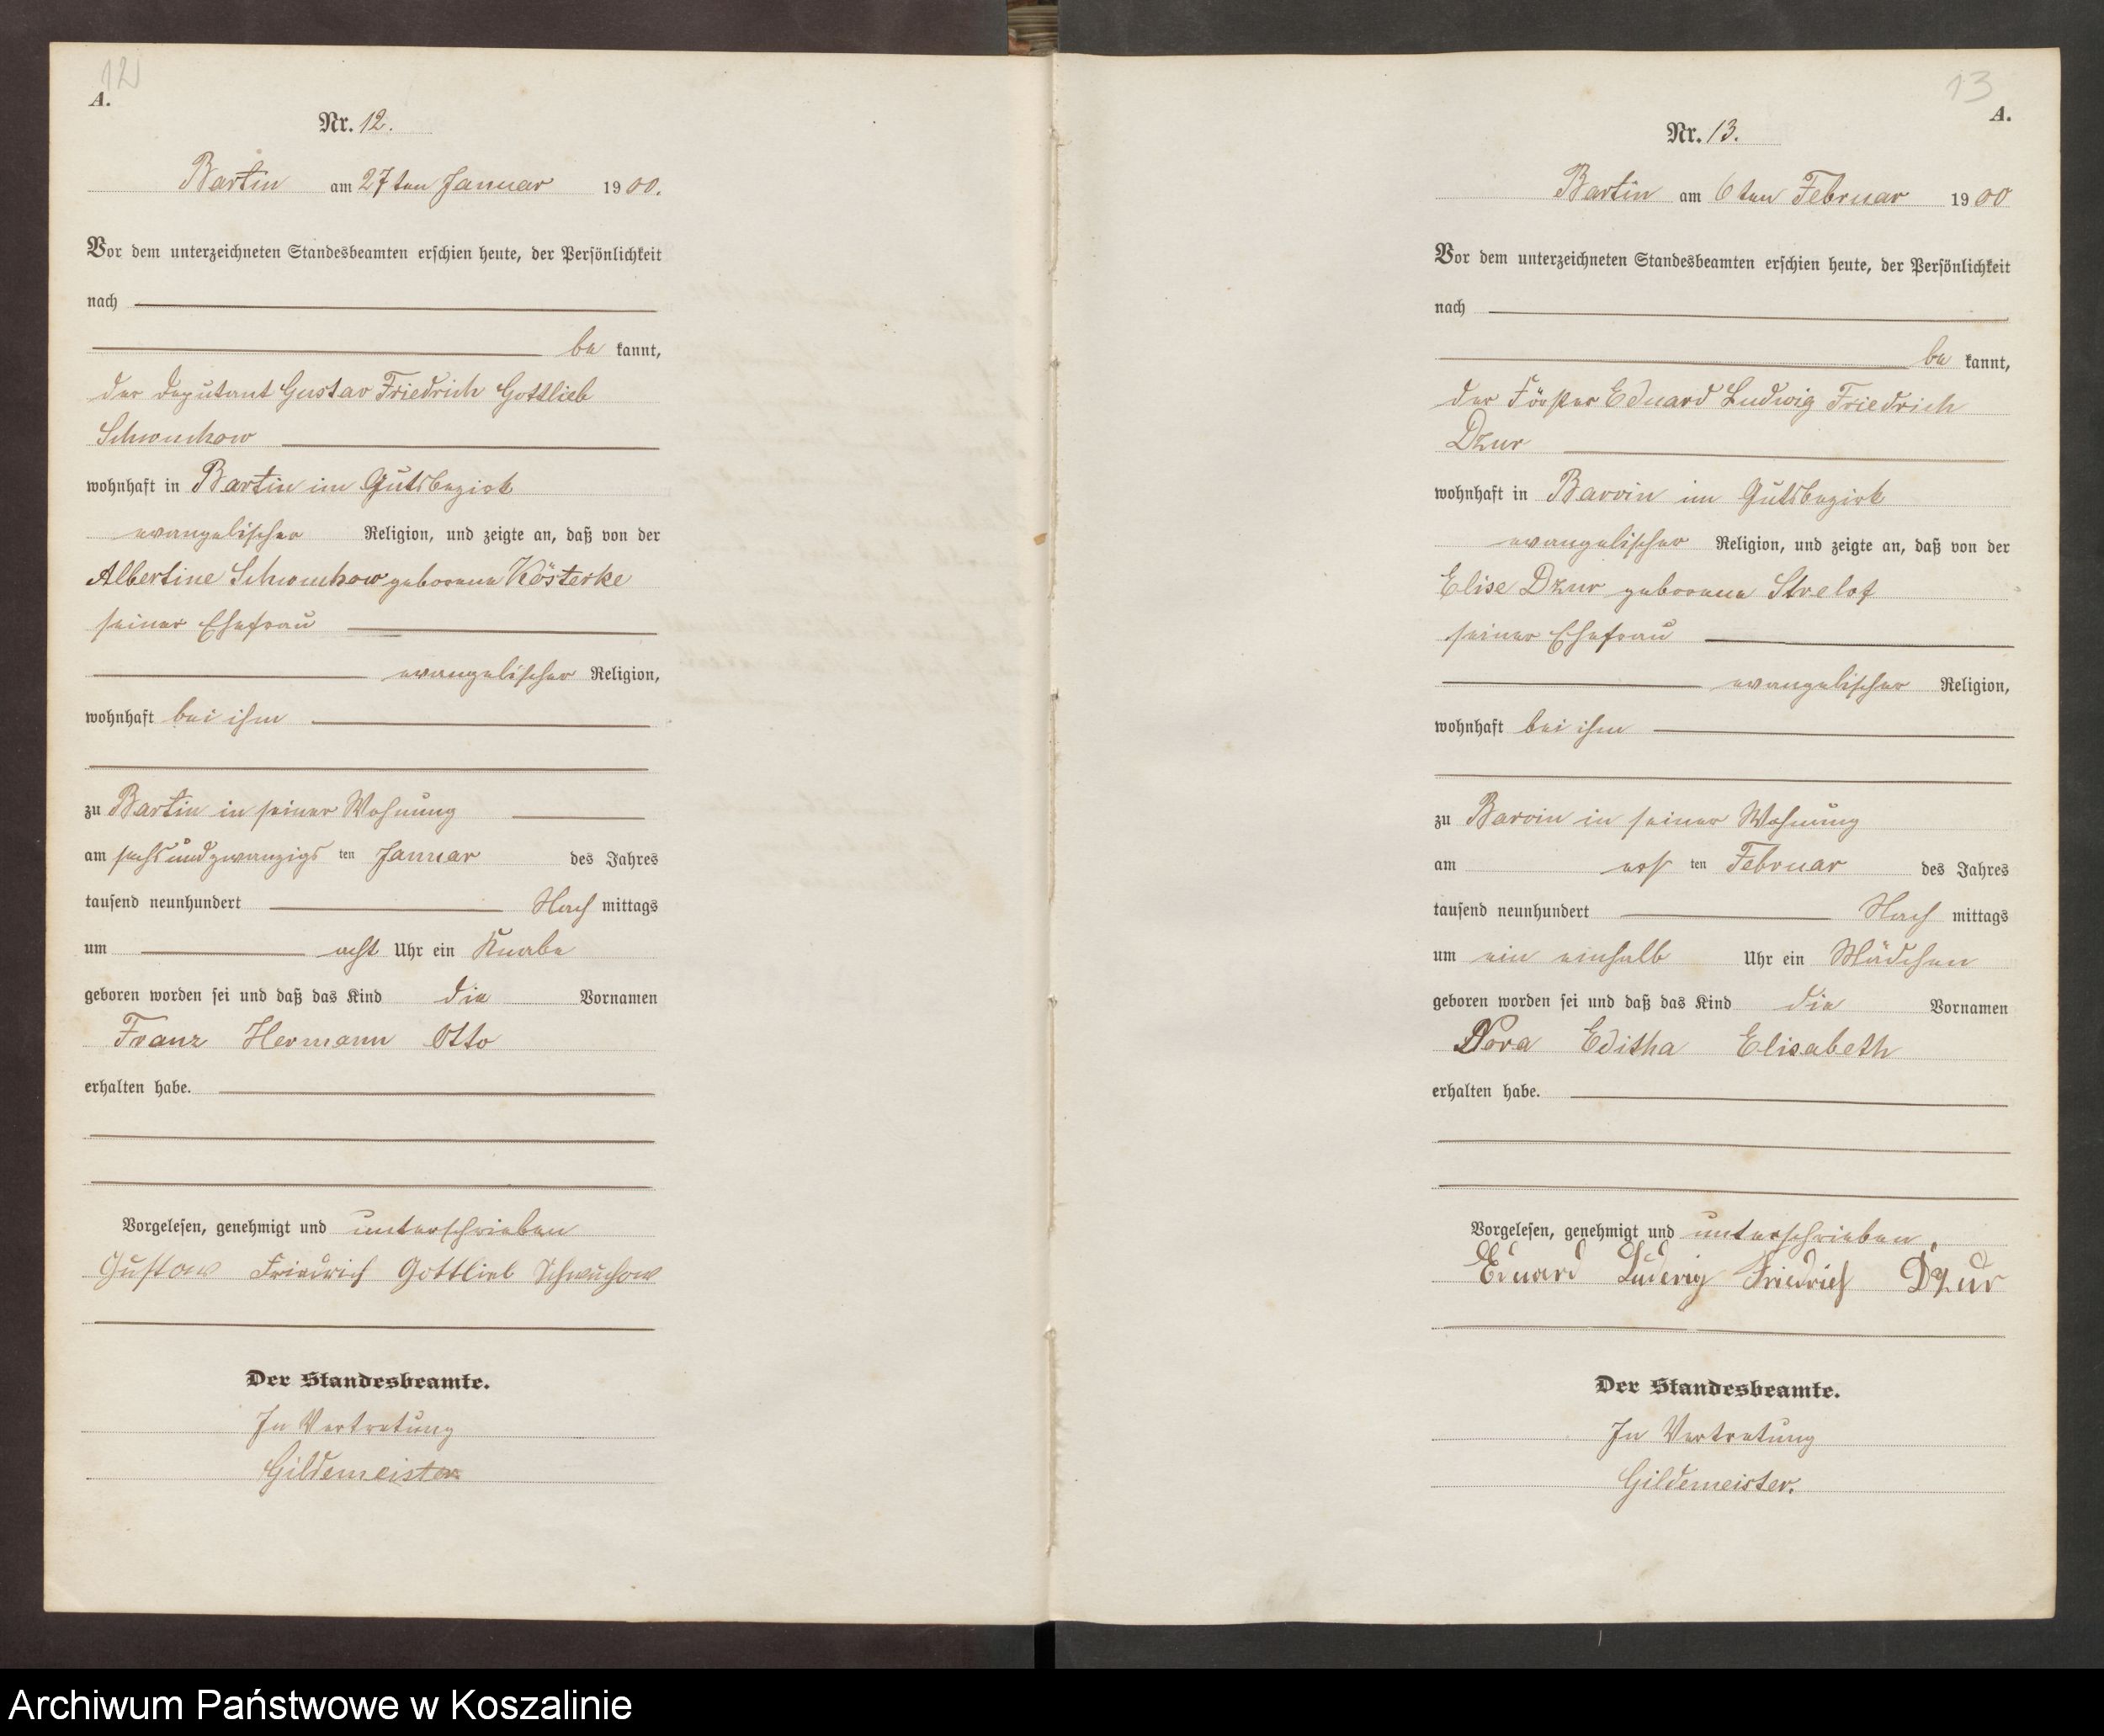 12
A.
Nr. 12.
Bartin am 27ten Januar 1900.
Vor dem unterzeichneten Standesbeamten erschien heute, der Persönlichkeit
nach
be kannt,
der Deputant Gustav Friedrich Gottlieb
Schwuchow
wohnhaft in Bartin im Gutsbezirk
evangelischer Religion, und zeigte an, daß von der
Albertine Schwuchow geborene Kösterke
seiner Ehefrau
evangelischer Religion,
wohnhaft bei ihm
zu Bartin in seiner Wohnung
am sechsundzwanzigs ten Januar des Jahres
tausend neunhundert Nach mittags
um acht Uhr ein Knabe
geboren worden sei und daß das Kind die Vornamen
Franz Hermann Otto
erhalten habe.
Vorgelesen, genehmigt und unterschrieben
Gustow Friedrich Gottlieb Schwuchow
Der Standesbeamte.
In Vertretung
Gildemeister
13
A.
Nr. 13.
Bartin am 6ten Februar 1900
Vor dem unterzeichneten Standesbeamten erschien heute, der Persönlichkeit
nach
be kannt,
der Förster Eduard Ludwig Friedrich
Dzur
wohnhaft in Barvin im Gutsbezirk
evangelischer Religion, und zeigte an, daß von der
Elise Dzur geborene
seiner Ehefrau
evangelischer Religion,
wohnhaft bei ihm
zu Barvin in seiner Wohnung
am ers ten Februar des Jahres
tausend neunhundert Nach mittags
um ein einhalb Uhr ein Mädchen
geboren worden sei und daß das Kind die Vornamen
Editha Elisabeth
erhalten habe.
Vorgelesen, genehmigt und unterschrieben,
Eduard Ludewig Friedrich Dzur
Der Standesbeamte.
In Vertretung
Gildemeister.
Archiwum Państwowe w Koszalinie